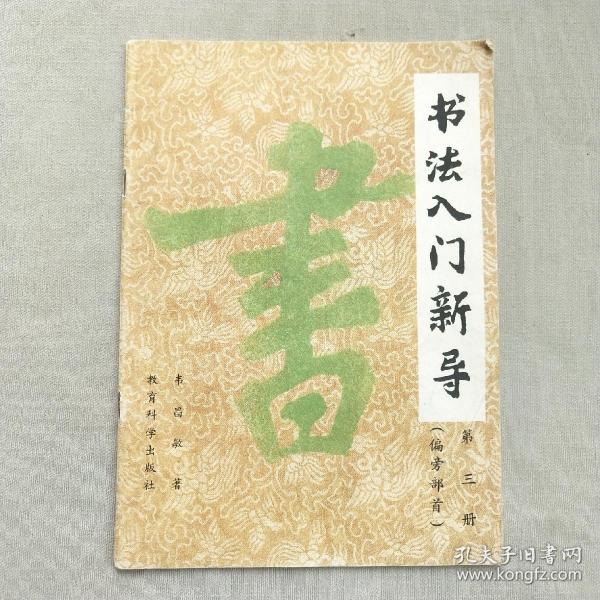 书法入门新导
第三册
(偏旁部首)
書
韦昌敏著
教育科学出版社
孔夫子旧书网
www.kongfz.com